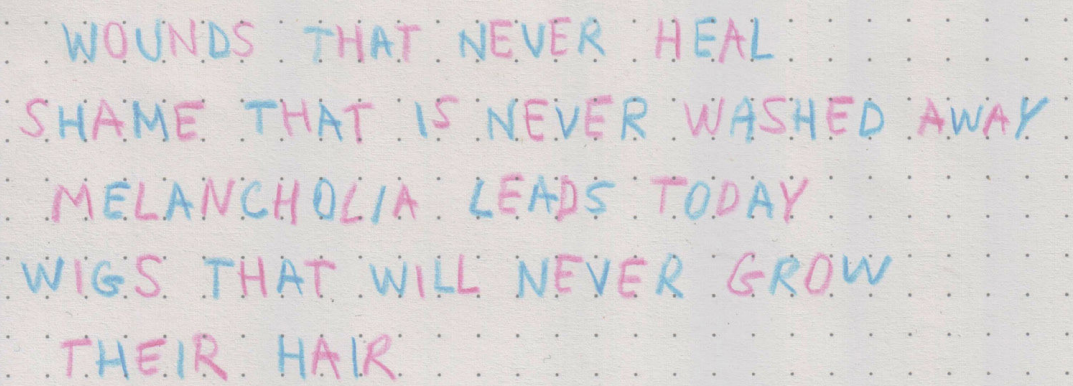 WOUNDS THAT NEVER HEAL
SHAME THAT IS NEVER WASHED AWAY
MELANCHOLIA LEADS TODAY
WIGS THAT WILL NEVER GROW
THEIR HAIR